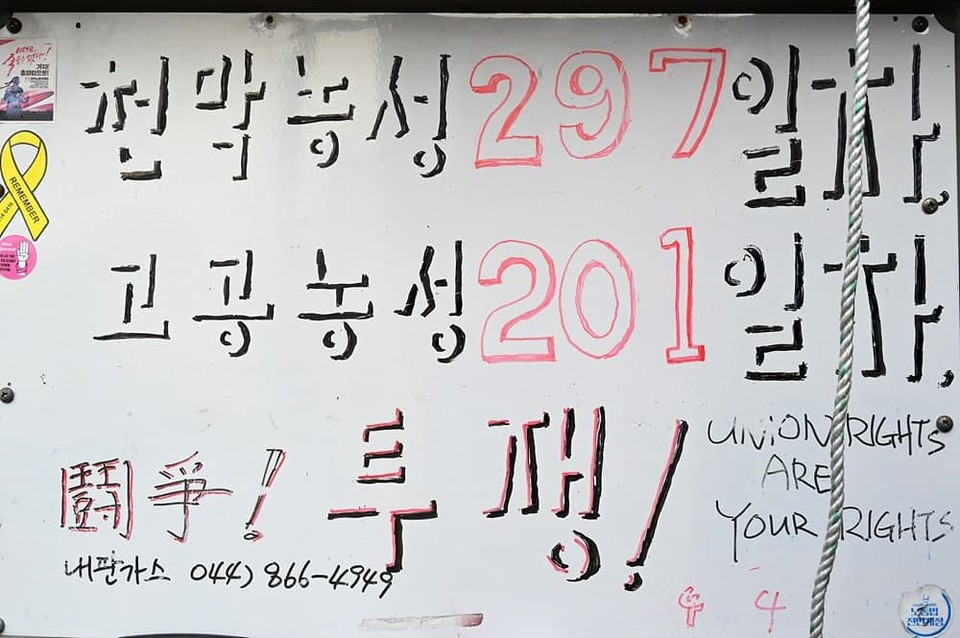 천막농성 297일차,
고공농성 201일차,
鬪爭! 투쟁!
UNION RIGHTS
ARE
YOUR RIGHTS
내판가스 044) 866-4949
REMEMBER